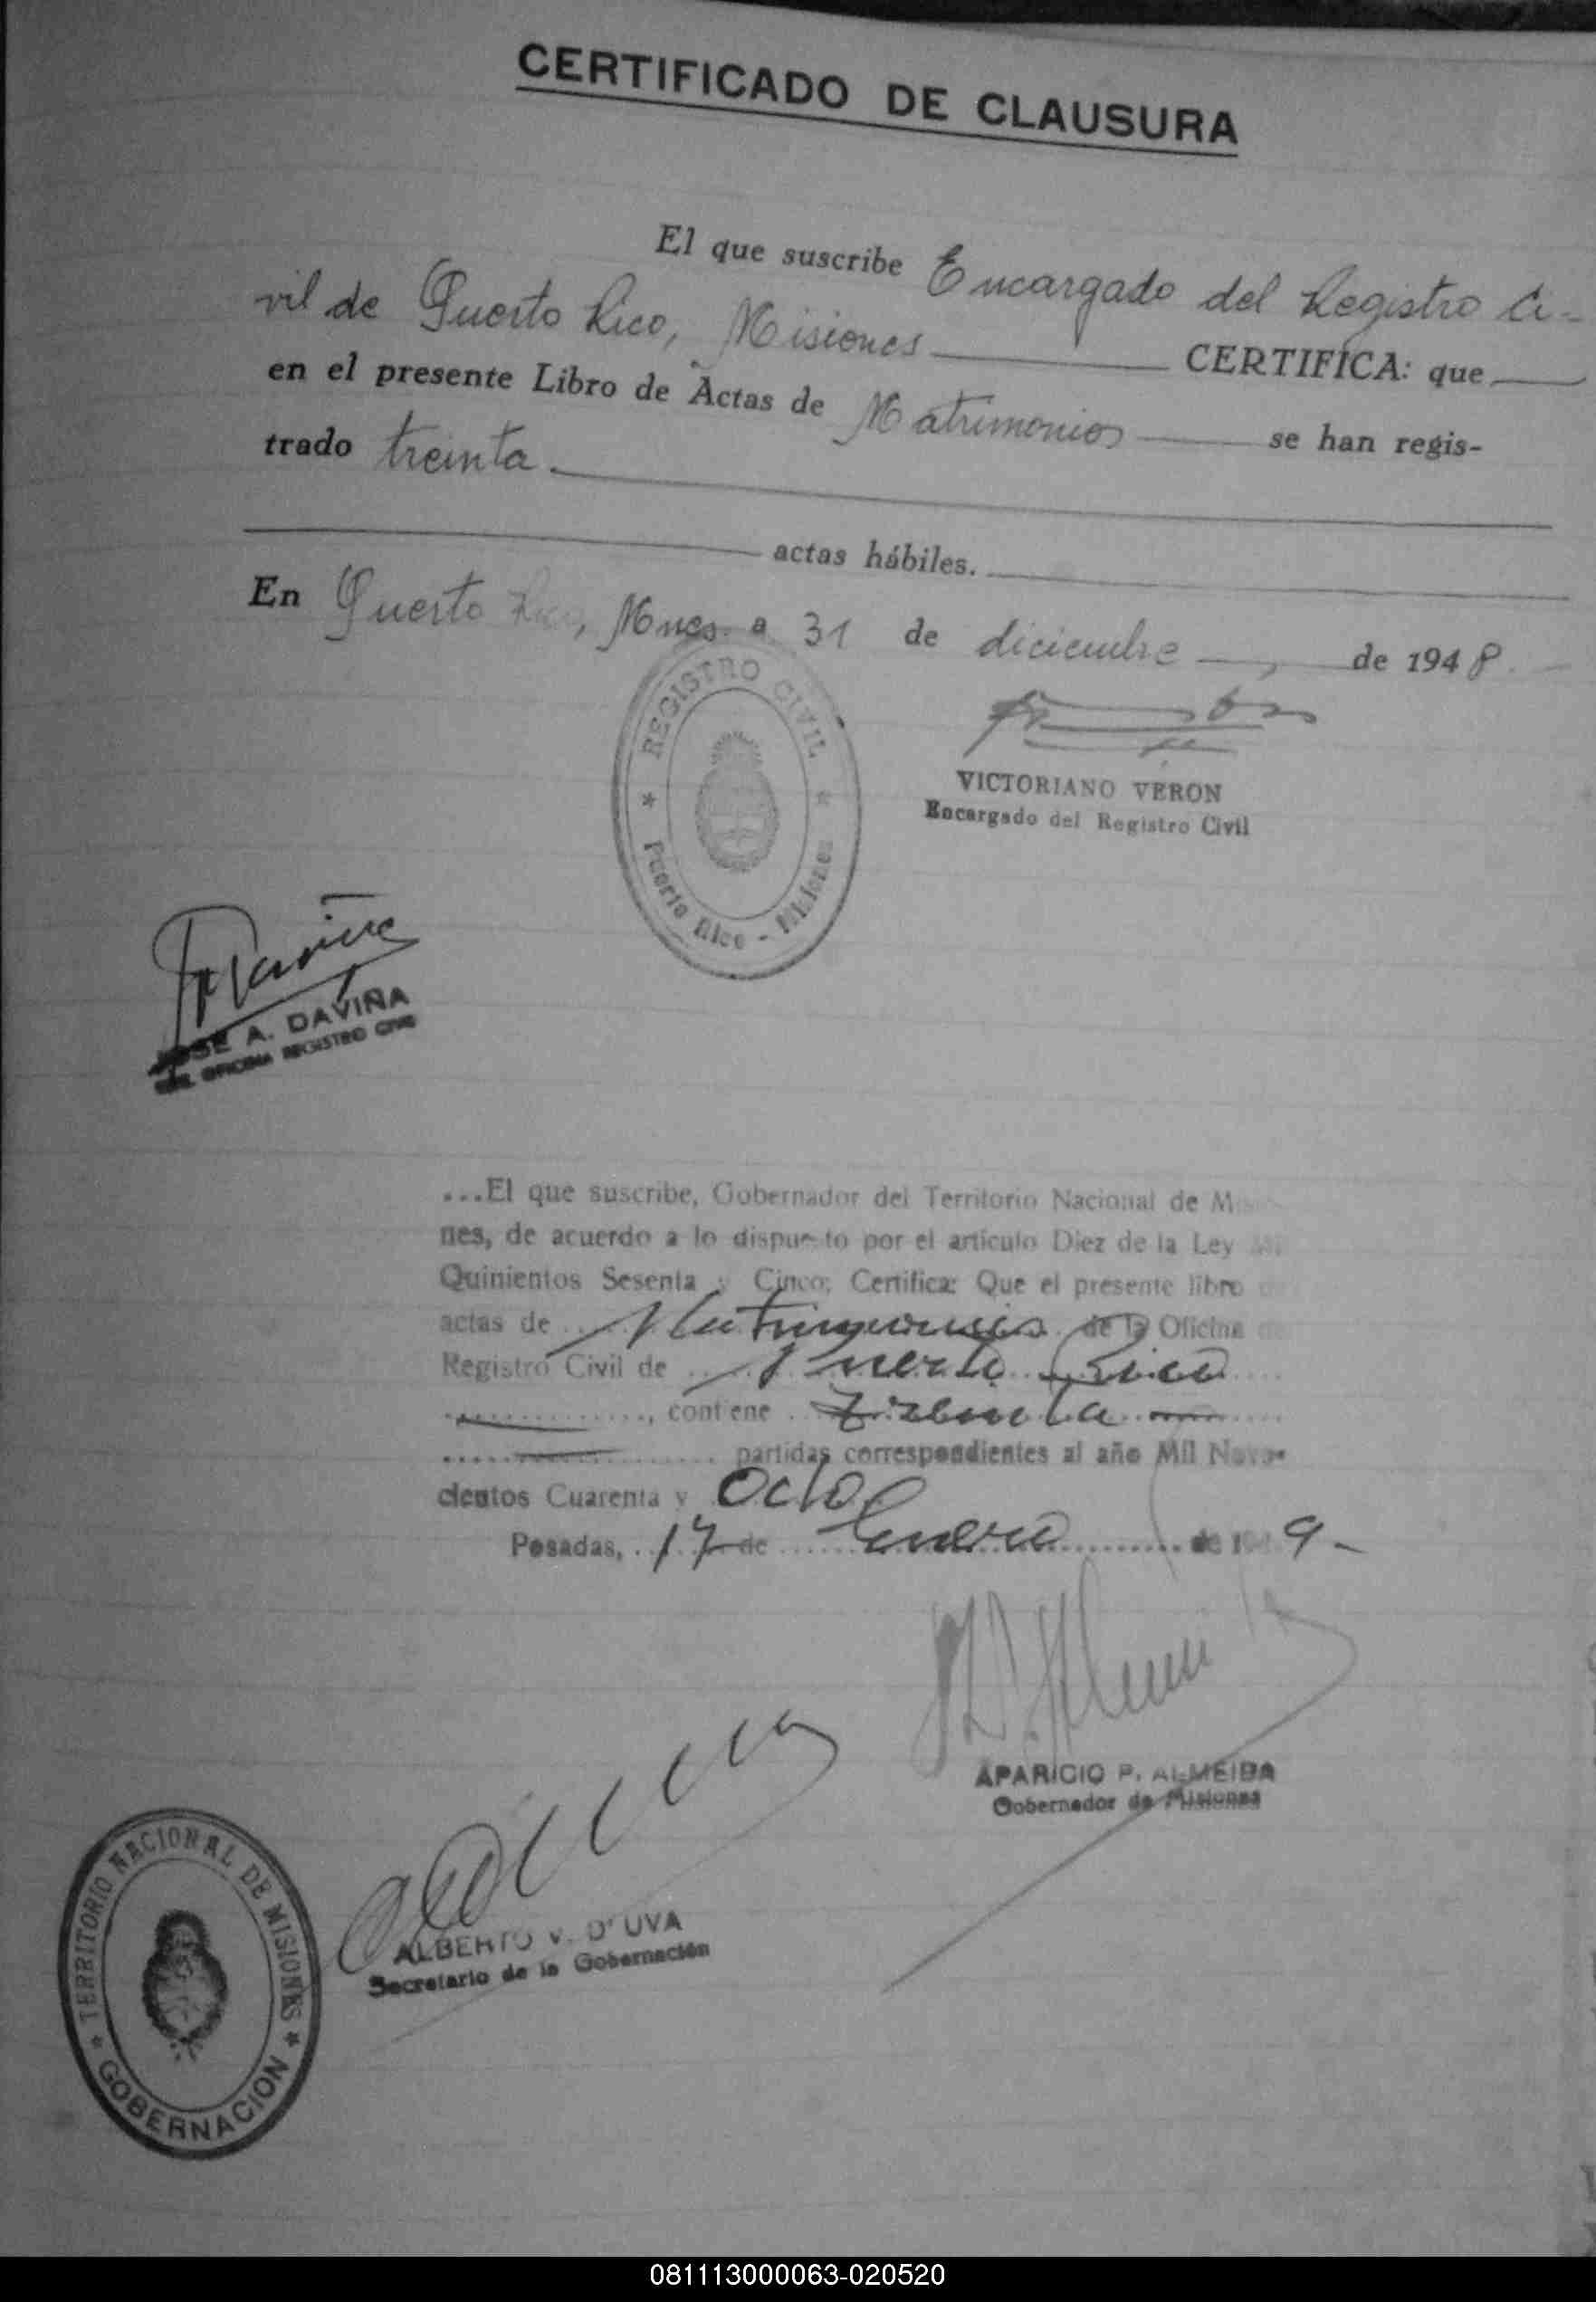 CERTIFICADO DE CLAUSURA
El que suscribe Encargado del Registro Ci-
vil de Puerto Rico, Misiones CERTIFICA: que
en el presente Libro de Actas de Matrimonios se han regis-
trado treinta
actas hábiles.
En Puerto Rico, Mnes. a 31 de diciembre de 1948.
REGISTRO CIVIL
Puerto Rico - Misiones
VICTORIANO VERON
Encargado del Registro Civil
JOSE A. DAVIÑA
OFICINA REGISTRO CIVIL
...El que suscribe, Gobernador del Territorio Nacional de Misio
nes, de acuerdo a lo dispuesto por el artículo Diez de la Ley Mil
Quinientos Sesenta y Cinco; Certifica: Que el presente libro de
actas de Matrimonios de la Oficina del
Registro Civil de Puerto Rico
, contiene Treinta
partidas correspondientes al año Mil Nove-
cientos Cuarenta y Ocho
Posadas, 17 de Enero de 1949.-
APARICIO P. ALMEIDA
Gobernador de Misiones
ALBERTO V. D'UVA
Secretario de la Gobernación
TERRITORIO NACIONAL DE MISIONES
GOBERNACION
081113000063-020520